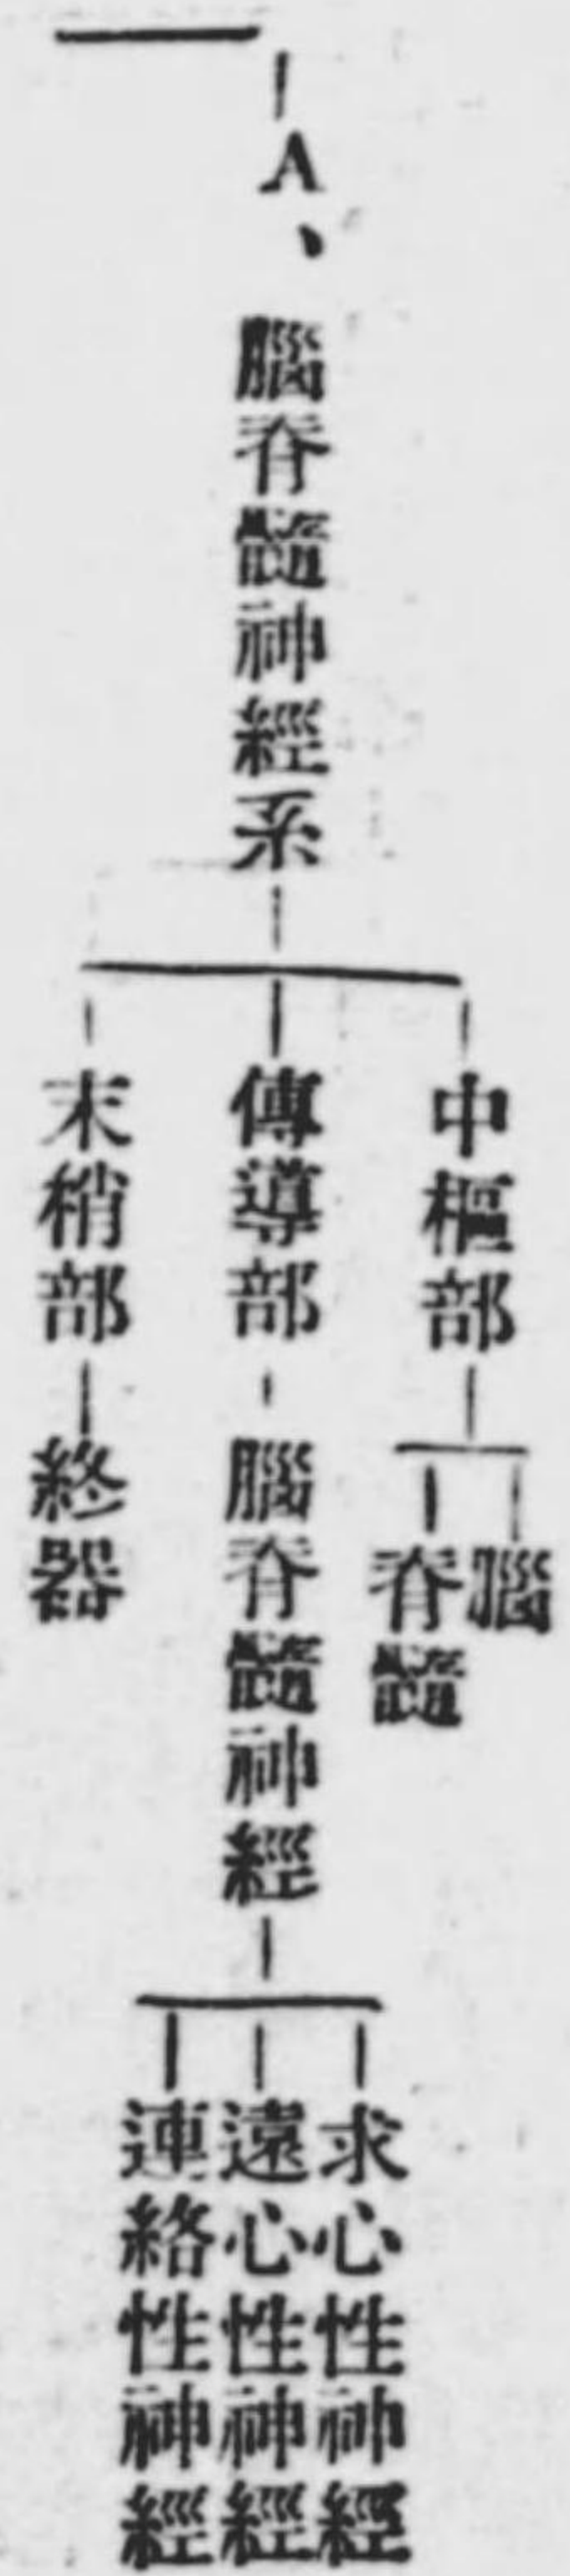 A、腦脊髓神經系
中樞部
腦
脊髓
傳導部
腦脊髓神經
求心性神經
遠心性神經
連絡性神經
末梢部
終器